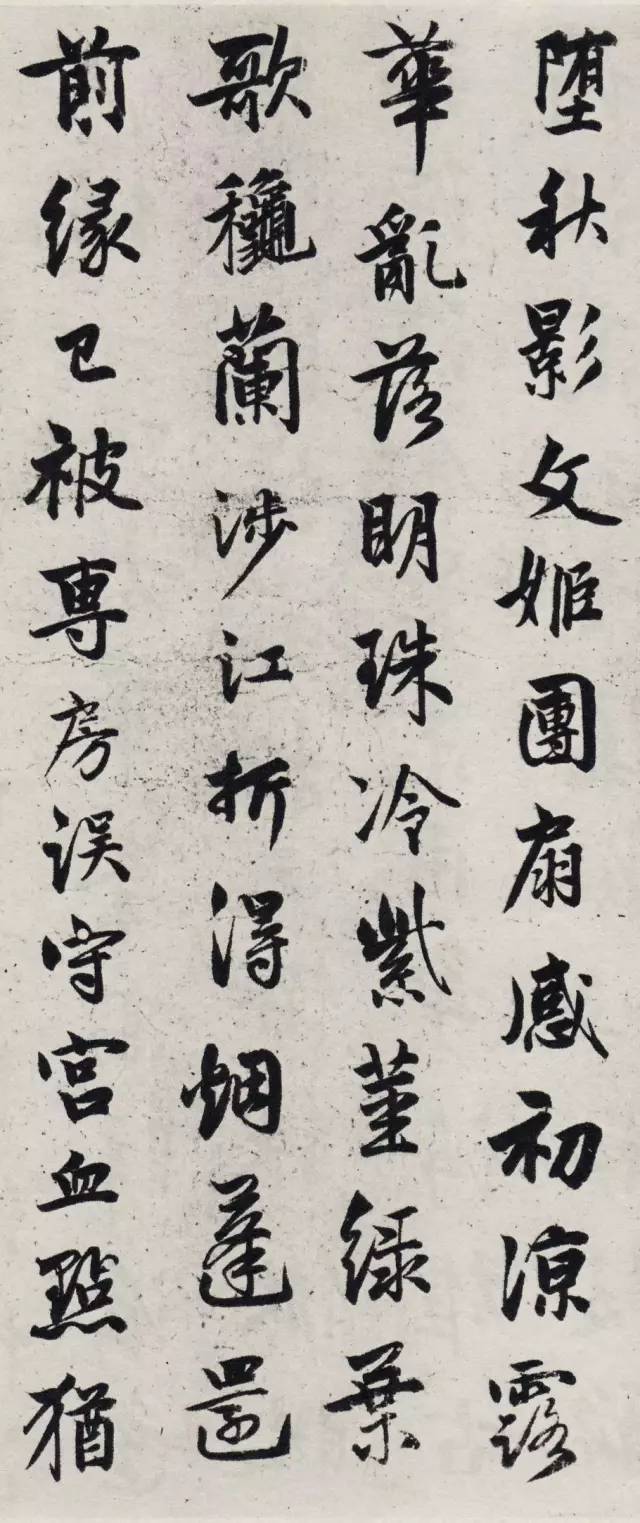 堕秋影文姬團扇感初涼露
華亂落明珠冷紫莖綠葉
歌龝蘭涉江折得烟蓬還
前緣已被專房誤守宮血點猶